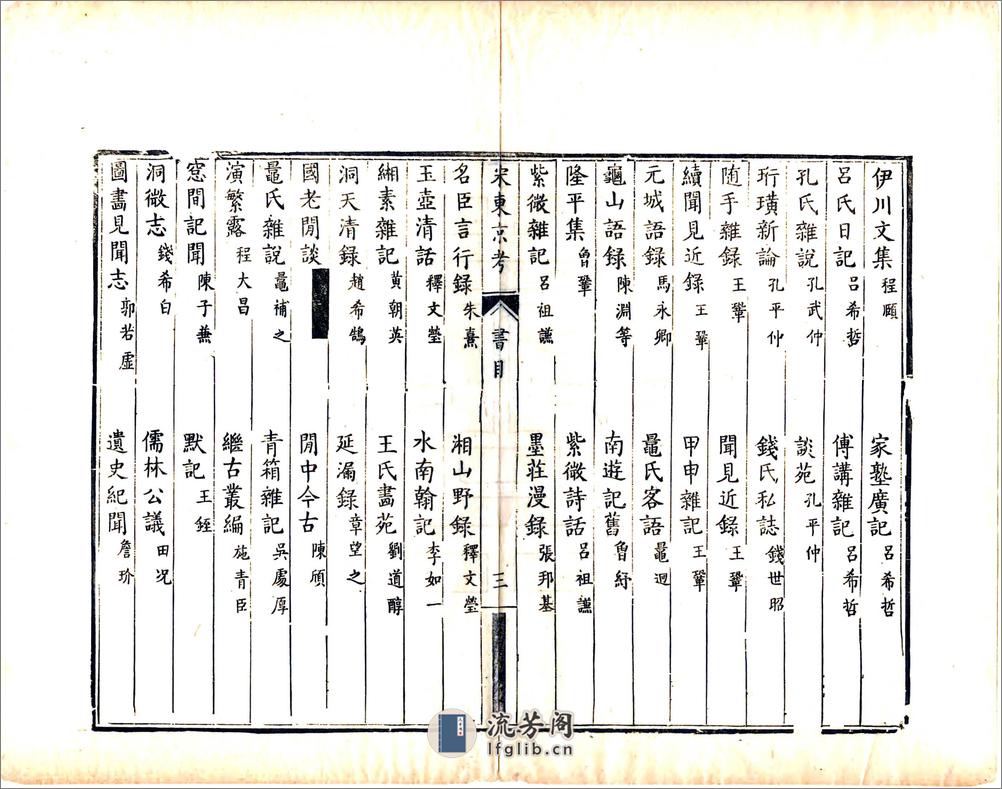 伊川文集 程頤 家塾廣記 呂希哲
呂氏日記 呂希哲 傅講雜記 呂希哲
孔氏雜説 孔武仲 談苑 孔平仲
珩璜新論 孔平仲 錢氏私誌 錢世昭
随手雜録 王鞏 聞見近録 王鞏
續聞見近録 王鞏 甲申雜記 王鞏
元城語録 馬永卿 鼂氏客語 鼂迥
龜山語録 陳淵等 南遊記舊 魯紆
隆平集 魯鞏 紫微詩話 呂祖謙
紫微雜記 呂祖謙 墨莊漫録 張邦基
宋東京考 書目 三
名臣言行録 朱熹 湘山野録 釋文瑩
玉壺清話 釋文瑩 水南翰記 李如一
緗素雜記 黄朝英 王氏畫苑 劉道醇
洞天清録 趙希鵠 延漏録 章望之
國老閒談 閒中今古 陳頎
鼂氏雜説 鼂補之 青箱雜記 吳處厚
演繁露 程大昌 繼古叢編 施青臣
窓間記聞 陳子兼 默記 王銍
洞微志 錢希白 儒林公議 田况
圖畵見聞志 郭若虚 遺史紀聞 詹玠
流芳阁
lfglib.cn